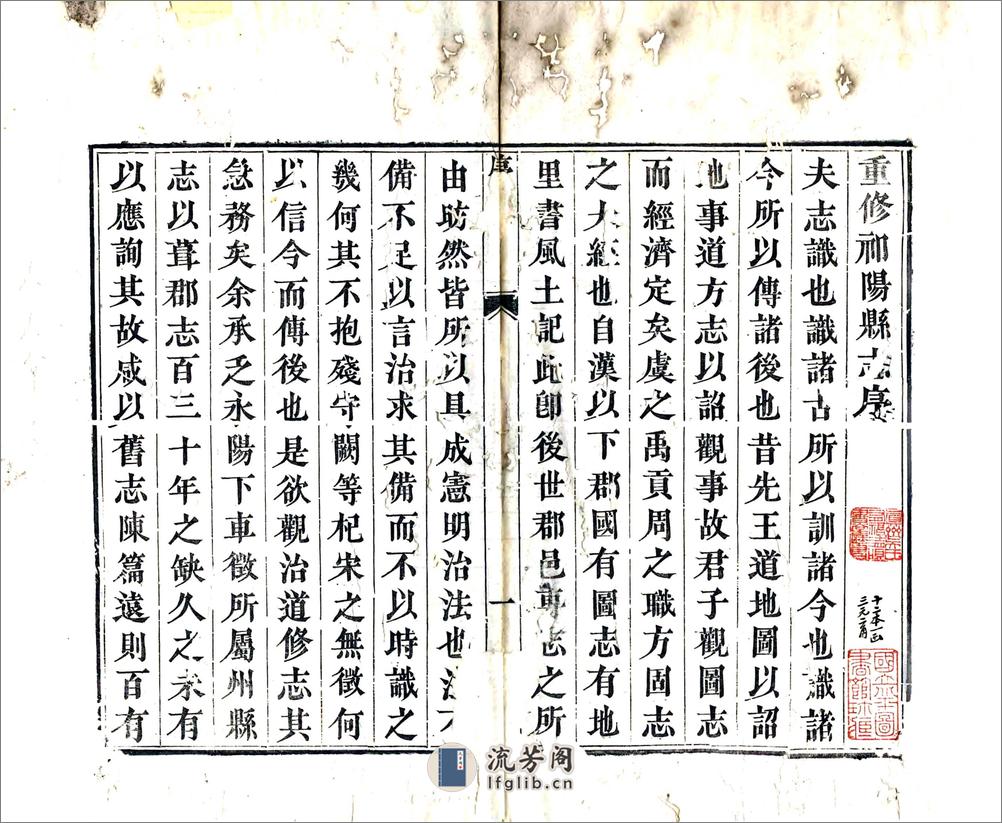 重修祁陽縣志序
夫志識也識諸古所以訓諸今也識諸
今所以傳諸後也昔先王道地圖以詔
地事道方志以詔觀事故君子觀圖志
而經濟定矣虞之禹貢周之職方固志
之大經也自漢以下郡國有圖志有地
里書風土記此卽後世郡邑專志之所
序
一
由昉然皆所以具成憲明治法也法不
備不足以言治求其備而不以時識之
幾何其不抱殘守闕等杞宋之無徵何
以信今而傳後也是欲觀治道修志其
急務矣余承乏永陽下車徵所屬州縣
志以葺郡志百三十年之缺久之未有
以應詢其故咸以舊志陳篇遠則百有
十二本一函
三元二角
國立北平圖
書館珍藏
流芳阁
lfglib.cn